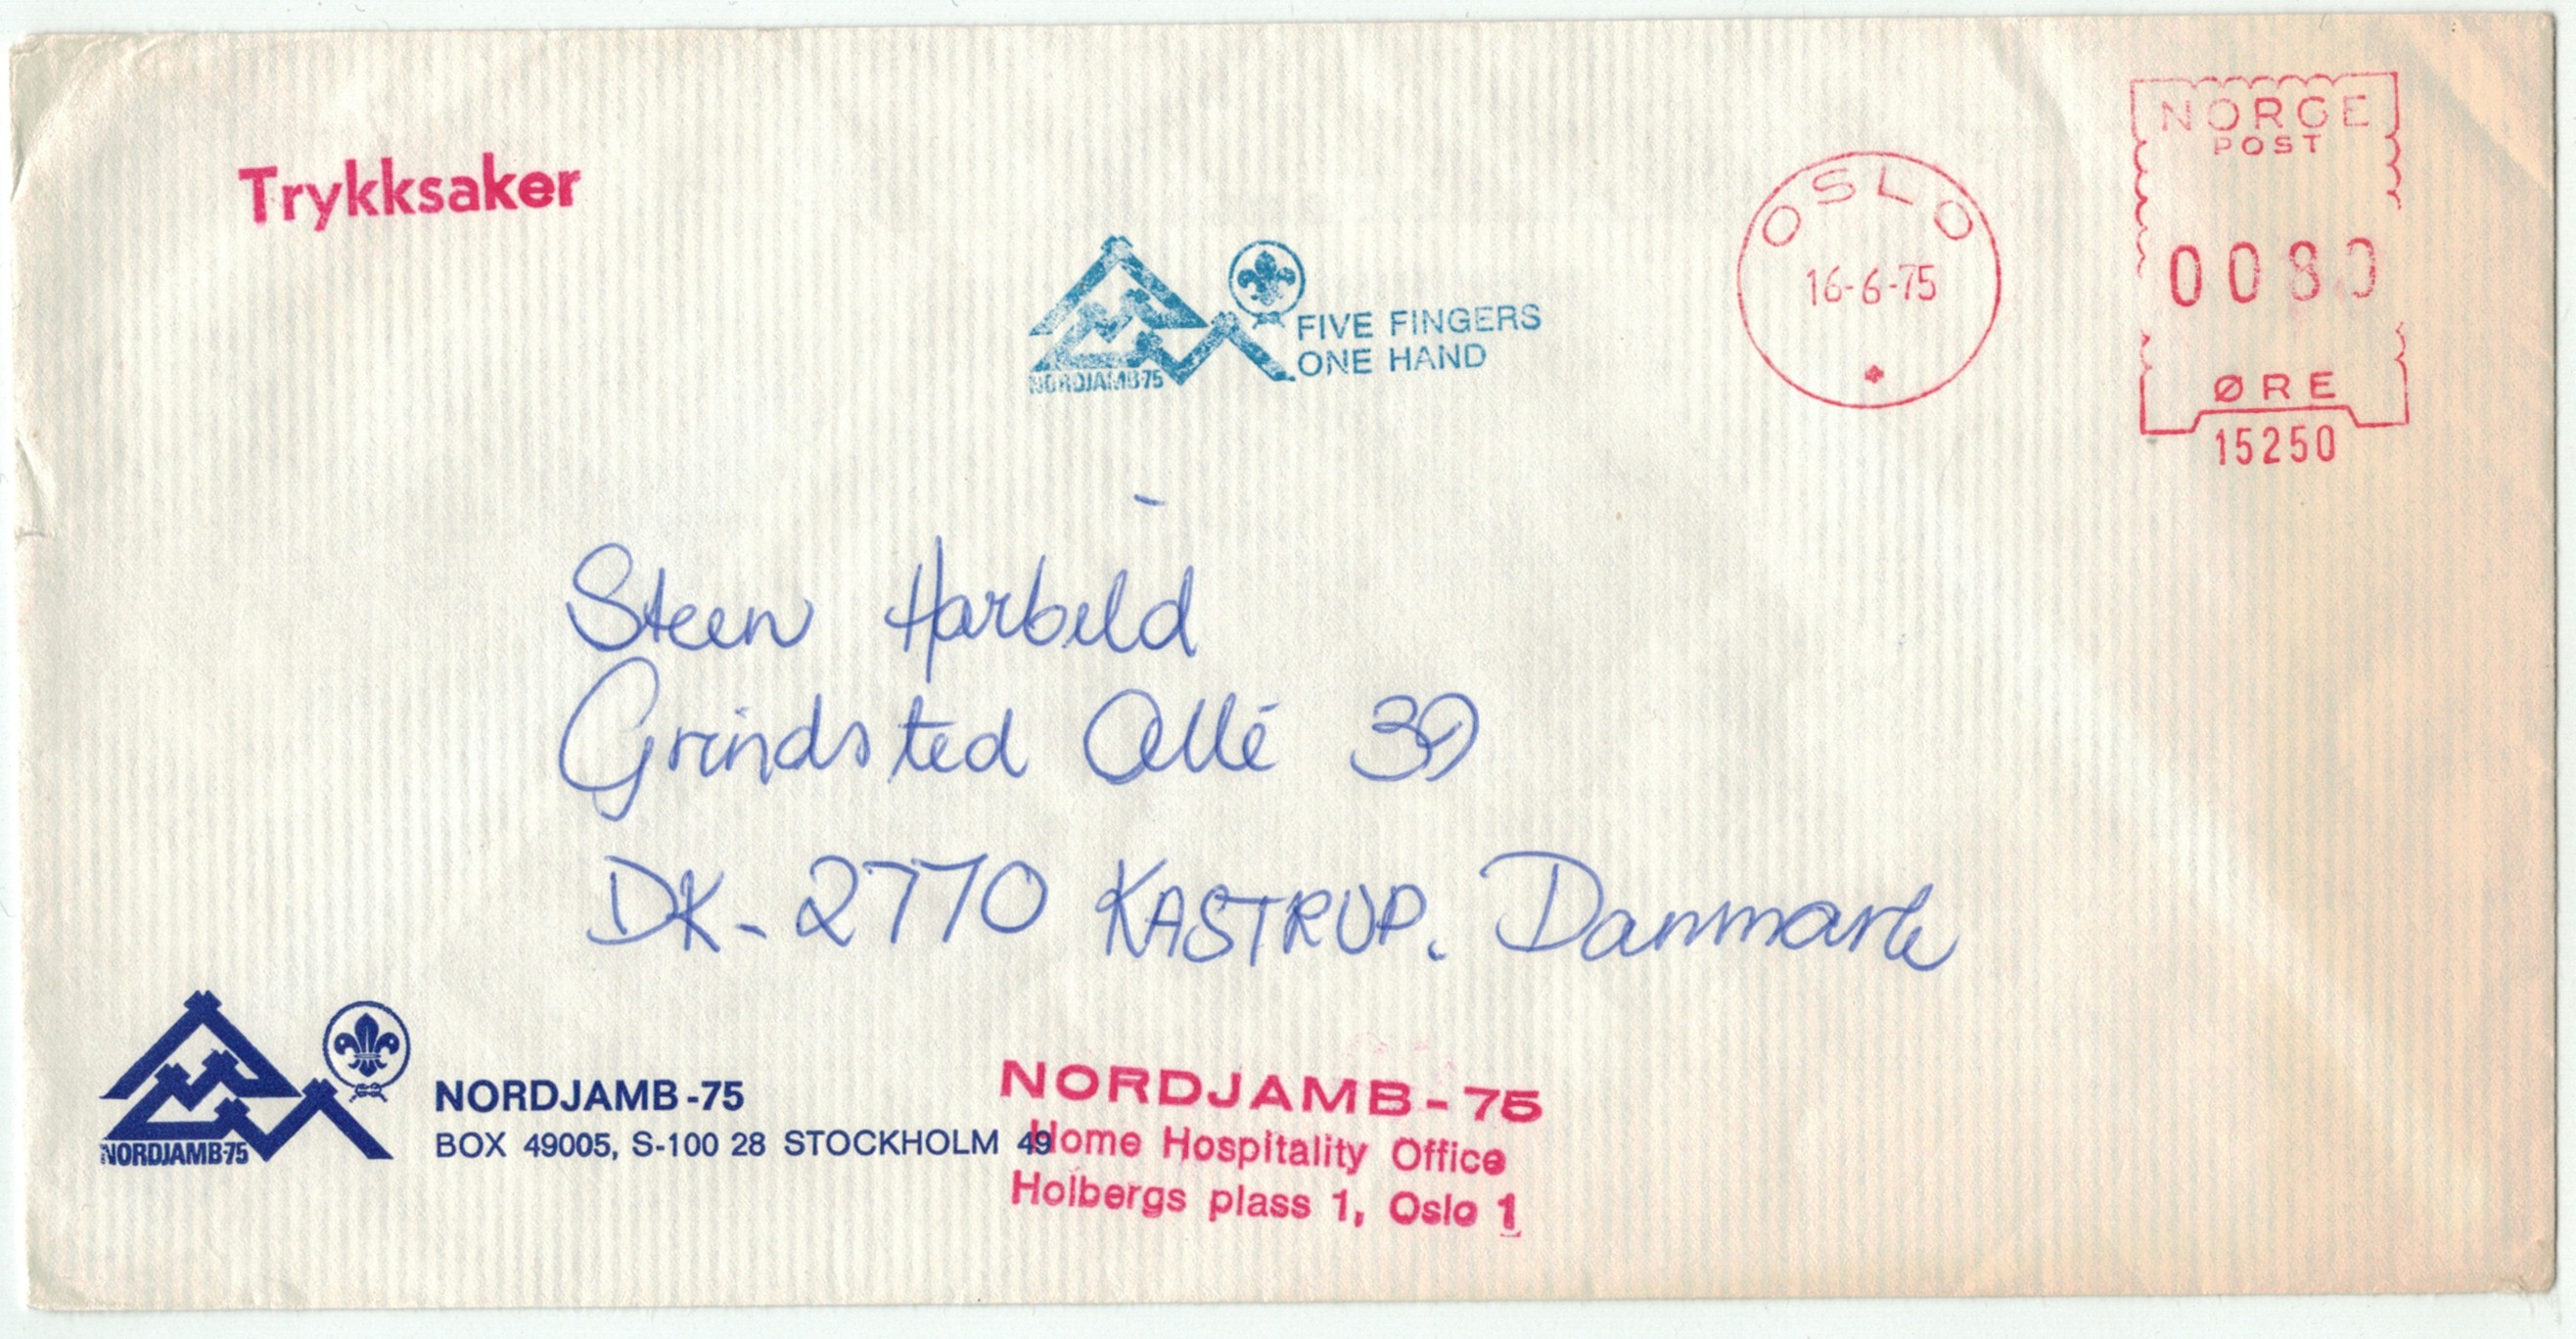 Trykksaker
NORDJAMB-75
FIVE FINGERS
ONE HAND
OSLO
16-6-75
NORGE
POST
0080
ØRE
15250
Steen Harbild
Grindsted Allé 39
DK-2770 KASTRUP. Danmark
NORDJAMB-75
NORDJAMB-75
BOX 49005, S-100 28 STOCKHOLM 49
NORDJAMB-75
Home Hospitality Office
Holbergs plass 1, Oslo 1